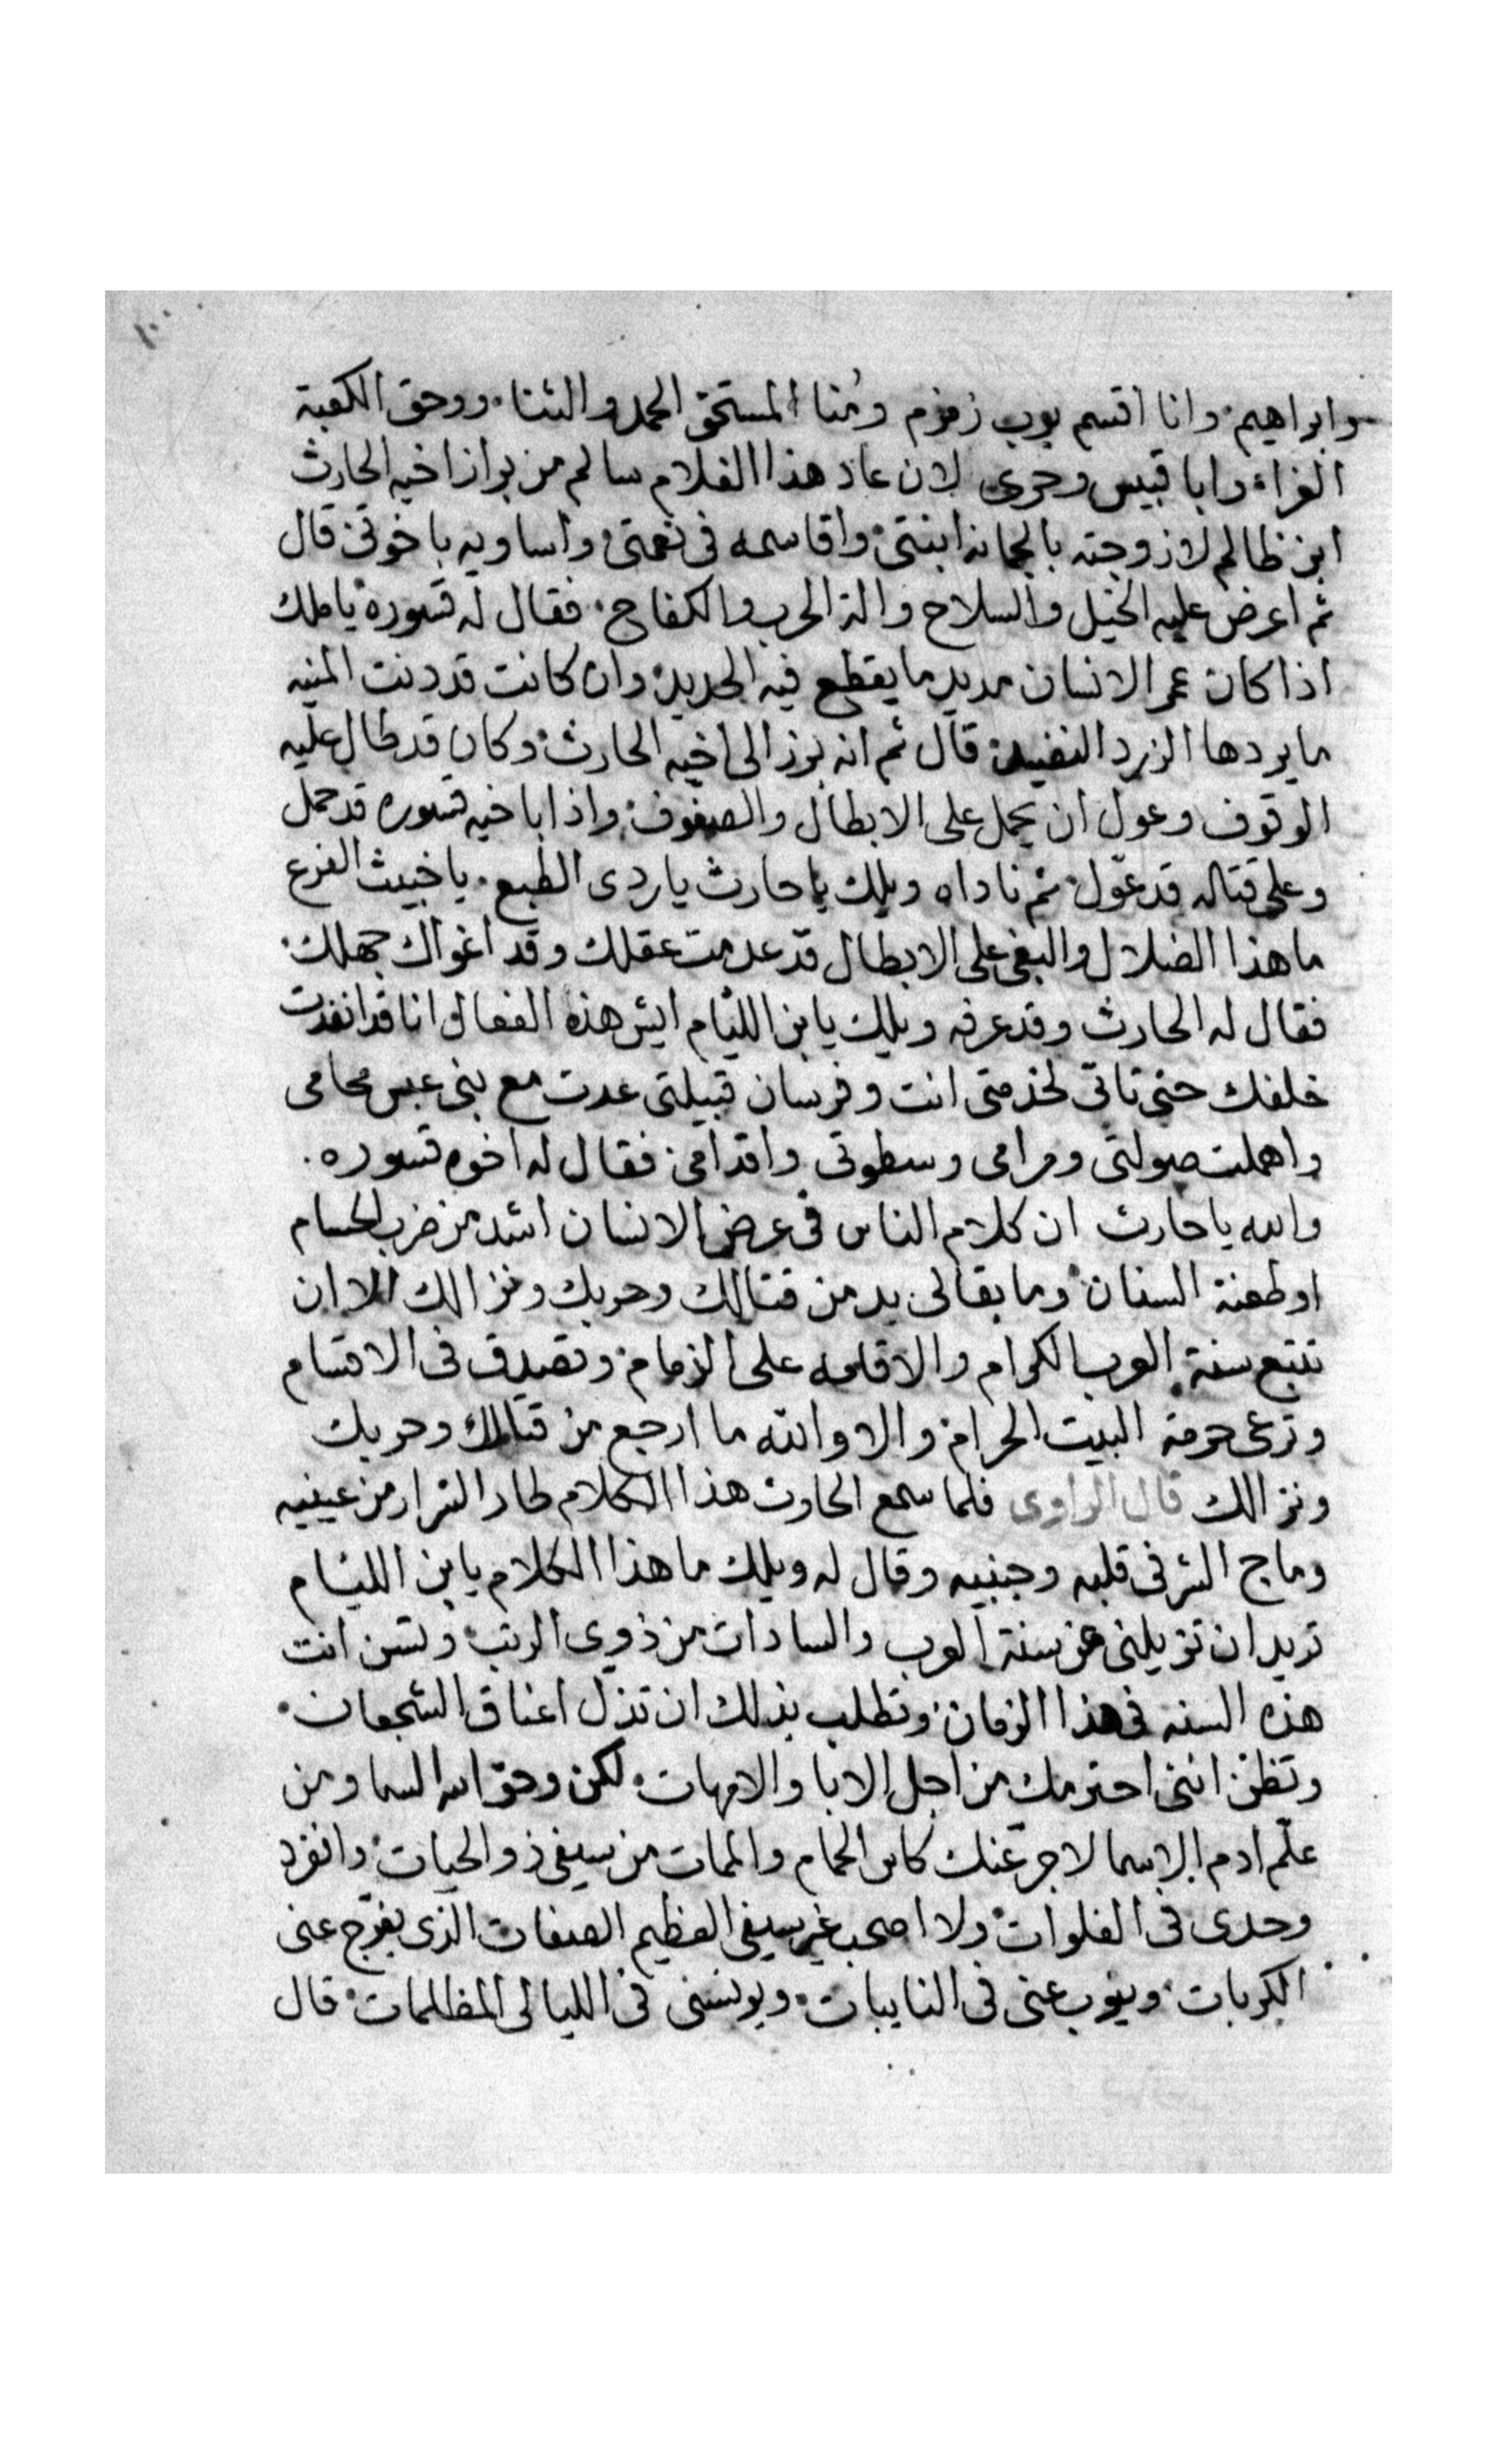 ١٠٠
وابراهيم وانا اقسم برب زمزم ومنا المستحق الحمد والثنا ووحق الكعبة
الغراء وابا قبيس وحرى لان عاد هذا الغلام سالم من براز اخيه الحارث
ابن ظالم لازوجته بالجمانه ابنتى واقاسمه فى نعمتى واساويه باخوتى قال
ثم اعرض عليه الخيل والسلاح والة الحرب والكفاح فقال له قسوره ياملك
اذا كان عمر الانسان مديد ما يقطع فيه الحديد وان كانت قد دنت المنيه
ما يردها الزرد النضيد قال ثم انه برز الى اخيه الحارث وكان قد طال عليه
الوقوف وعول ان يحمل على الابطال والصفوف واذا باخيه قسوره قد حمل
وعلى قتاله قد عوّل ثم ناداه ويلك يا حارث يا ردى الطبع يا خبيث الفرع
ما هذا الضلال والبغى على الابطال قد عدمت عقلك وقد اغواك جهلك
فقال له الحارث وقد عرفه ويلك يابن الليام ايش هذه الفعال وانا قد انفدت
خلفك حتى تاتى لخدمتى انت وفرسان قبيلتى عدت مع بنى عبس محامى
واهملت صولتى ومرامى وسطوتى واقدامى فقال له اخوه قسوره
والله يا حارث ان كلام الناس فى عرض الانسان اشد من ضرب الحسام
او طعنة السنان وما بقا لى بد من قتالك وحربك ونزالك الا ان
تتبع سنة العرب الكرام والاقامه على الزمام وتصدق فى الاقسام
وترعى حرمة البيت الحرام والا والله ما ارجع من قتالك وحربك
ونزالك قال الراوى فلما سمع الحارث هذا الكلام طار الشرار من عينيه
وماج الشر فى قلبه وجنبيه وقال له ويلك ما هذا الكلام يابن الليام
تريد ان تزيلنى عن سنة العرب والسادات من ذوى الرتب وتسن انت
هذه السنه فى هذا الزمان وتطلب بذلك ان تذل اعناق الشجعان
وتظن اننى احترمك من اجل الابا والامهات لكن وحق اله السما ومن
علّم ادم الاسما لاجرّعنك كاس الحمام والممات من سيفى ذو الحيات وانفرد
وحدى فى الفلوات ولا اصحب غير سيفى العظيم الصفات الذى يفرّج عنى
الكربات وينوب عنى فى النايبات ويونسنى فى الليالى المظلمات قال